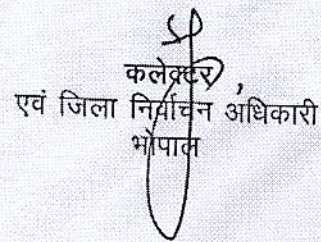 कलेक्टर,
एवं जिला निर्वाचन अधिकारी
भोपाल